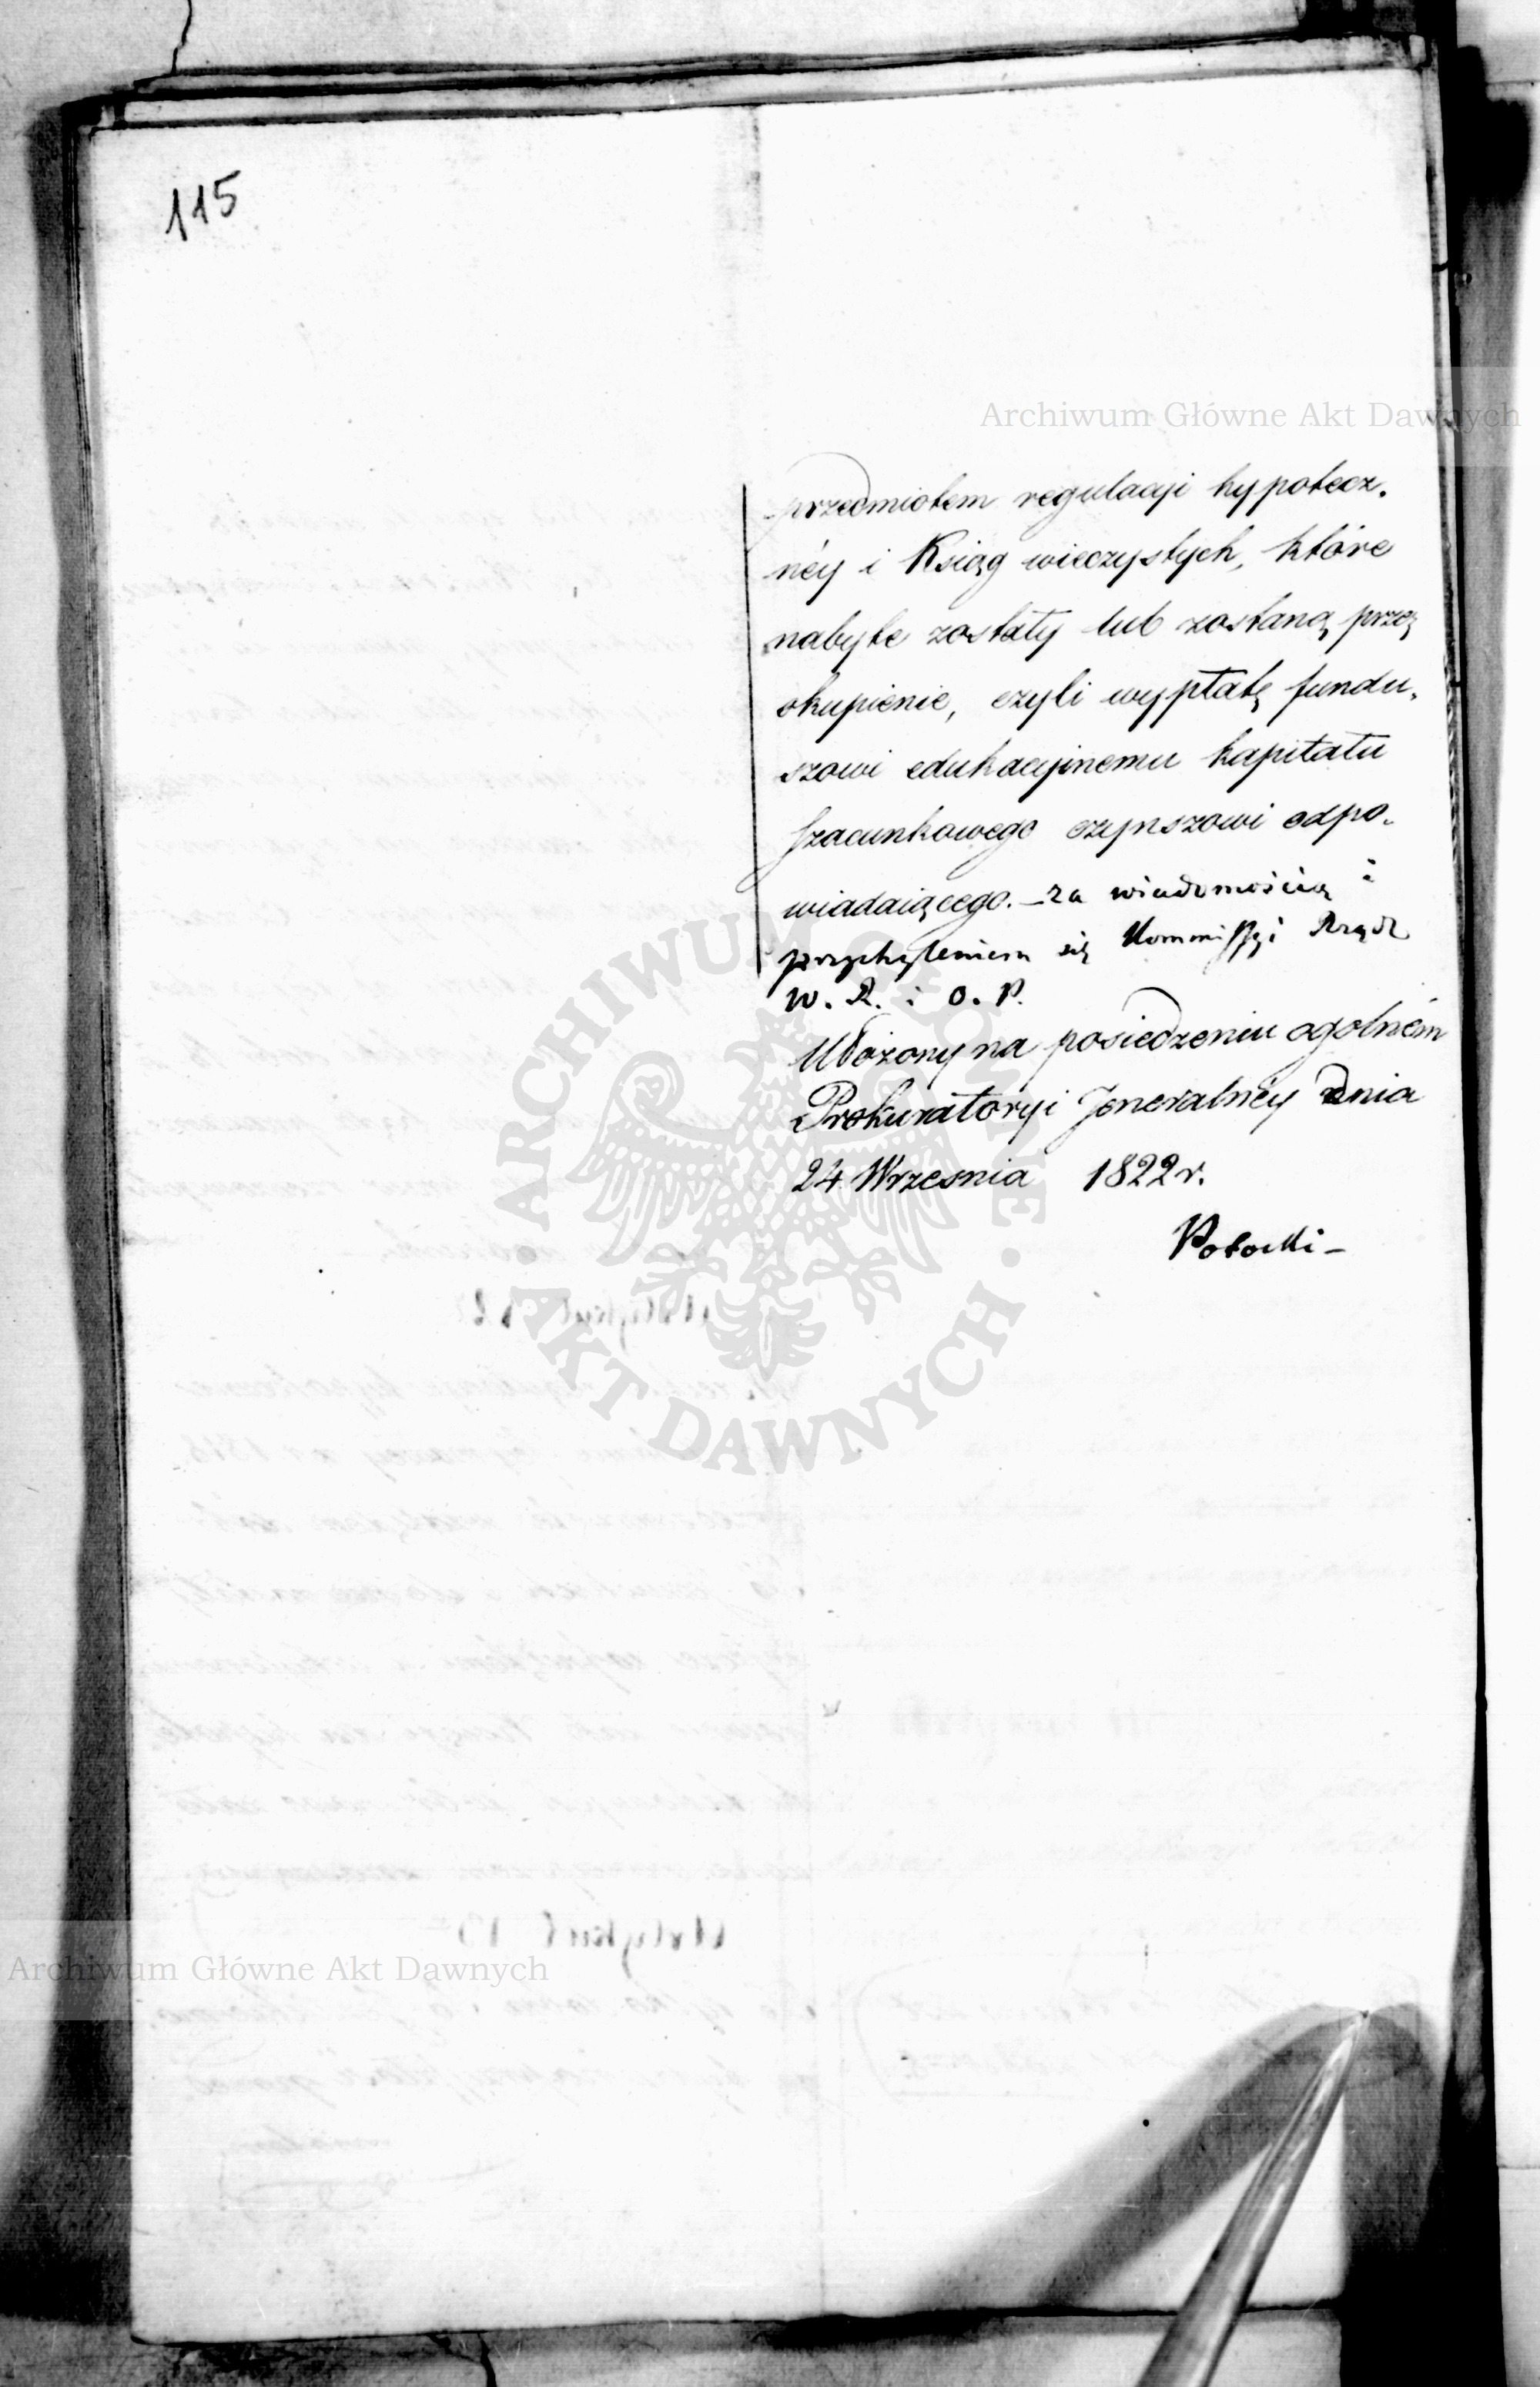 115
Archiwum Główne Akt Dawnych
przedmiotem regulacyi hypotecz-
néy i Ksiąg wieczystych, które
nabyte zostały lub zostaną przez
okupienie, czyli wypłatę fundu-
szowi edukacyinemu kapitału
szacunkowego czynszowi odpo-
wiadaiącego. – za wiadomością i
przychyleniem się Kommissyi Rządz
W. R. i O. P.
Ułożony na posiedzeniu ogolném
Prokuratoryi Jeneralnéy dnia
24 Wrzesnia 1822 r.
Potocki –
ARCHIWUM GŁÓWNE · AKT DAWNYCH ·
Archiwum Główne Akt Dawnych